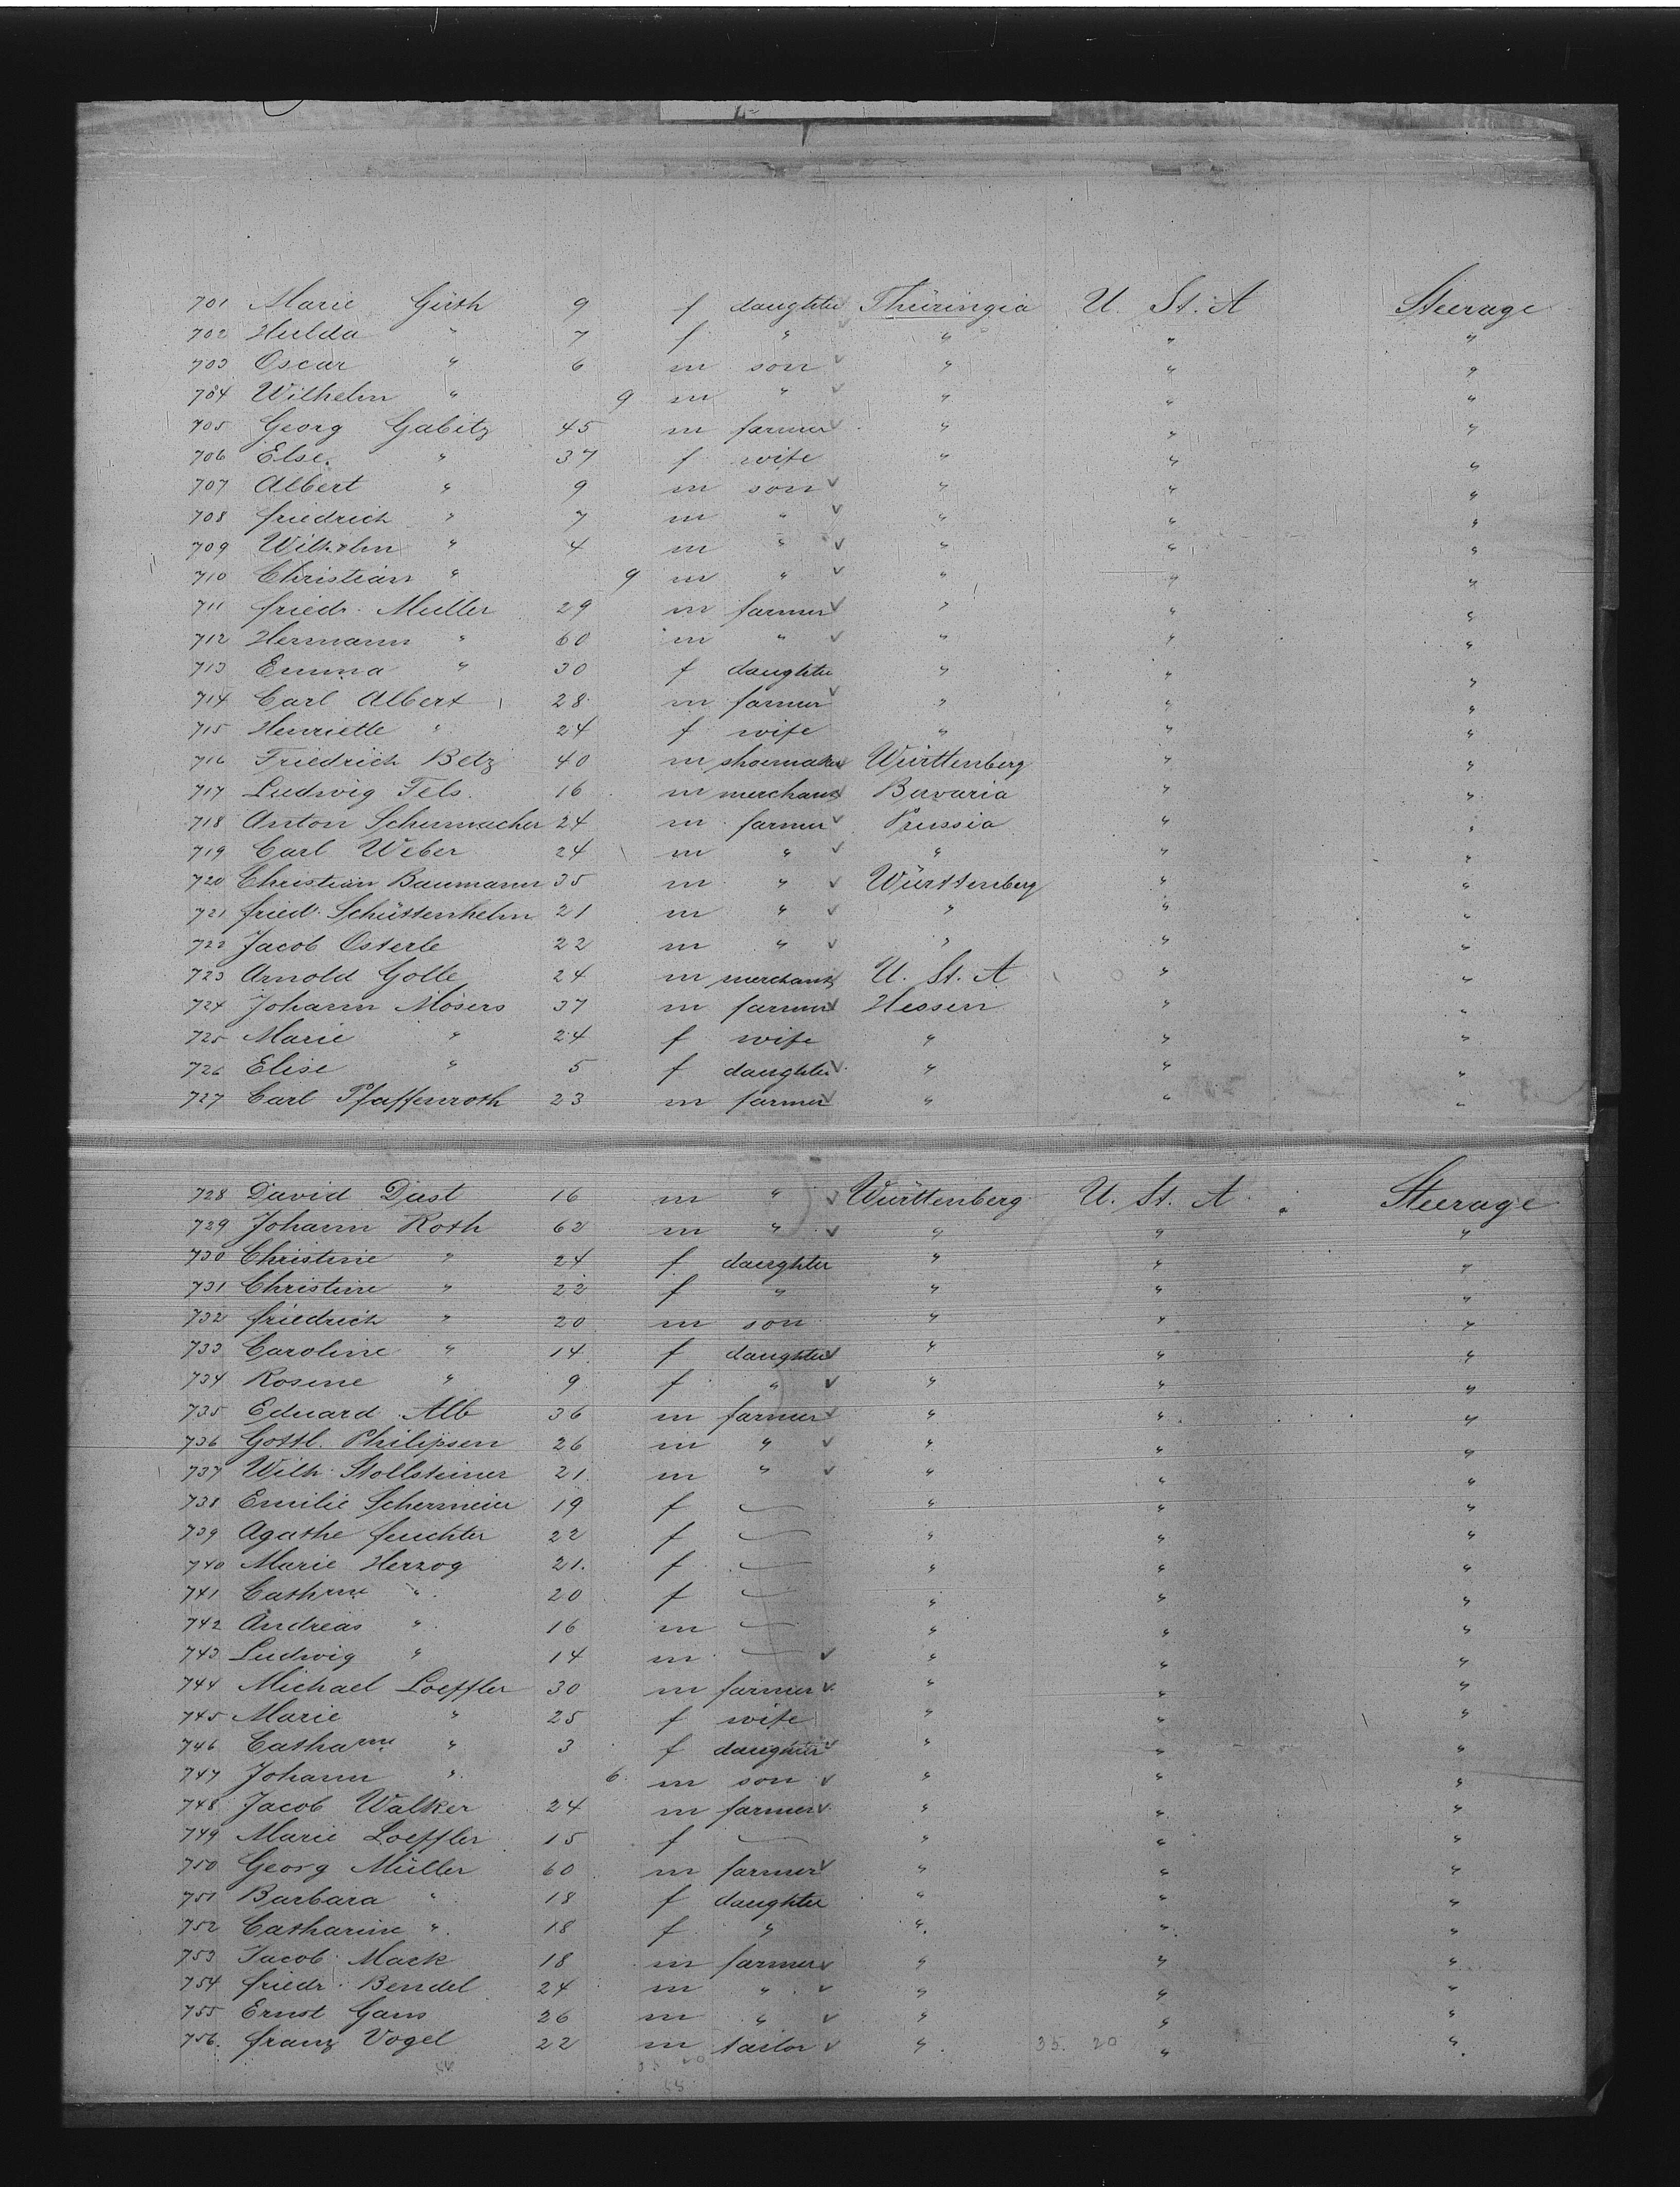 701 Marie Güth 9 f daughter Thüringia U. St. A Steerage
702 Hulda " 7 f " " " "
703 Oscar " 6 m son " " "
704 Wilhelm " 9 m " " " "
705 Georg Gabitz 45 m farmer " " "
706 Else. " 37 f wife " " "
707 Albert " 9 m son " " "
708 friedrich " 7 m " " " "
709 Wilhelm " 4 m " " " "
710 Christian " 9 m " " " "
711 friedr. Muller 29 m farmer " " "
712 Hermann " 60 m " " " "
713 Emma " 30 f daughter " " "
714 Carl Albert 28 m farmer " " "
715 Henriette " 24 f wife " " "
716 Friedrich Betz 40 m shoemaker Württenberg " "
717 Ludwig Fels. 16 m merchant Bavaria " "
718 Anton Schumacher 24 m farmer Prussia " "
719 Carl Weber 24 m " " " "
720 Christian Baumann 35 m " Württenberg " "
721 fried. Schüttenhelm 21 m " " " "
722 Jacob Osterle 22 m " " " "
723 Arnold Golle 24 m merchant U. St. A " "
724 Johann Mösers 37 m farmer Hessen " "
725 Marie " 24 f wife " " "
726 Elise " 5 f daughter " " "
727 Carl Pfaffenroth 23 m farmer " " "
728 David Dast 16 m " Württenberg U. St. A Steerage
729 Johann Roth 62 m " " " "
730 Christine " 24 f daughter " " "
731 Christine " 22 f " " " "
732 friedrich " 20 m son " " "
733 Caroline " 14 f daughter " " "
734 Rosine " 9 f " " " "
735 Eduard Alb 36 m farmer " " "
736 Gottl. Philipsen 26 m " " " "
737 Wilh. Stollsteiner 21 m " " " "
738 Emilie Schermeier 19 f — " " "
739 Agathe feuchter 22 f — " " "
740 Marie Herzog 21. f — " " "
741 Cathrine " 20 f — " " "
742 Andreas " 16 m — " " "
743 Ludwig " 14 m — " " "
744 Michael Loeffler 30 m farmer " " "
745 Marie " 25 f wife " " "
746 Catharine " 3 f daughter " " "
747 Johann " 6 m son " " "
748 Jacob Walker 24 m farmer " " "
749 Marie Loeffler 15 f — " " "
750 Georg Müller 60 m farmer " " "
751 Barbara " 18 f daughter " " "
752 Catharine " 18 f " " " "
753 Jacob Mack 18 m farmer " " "
754 friedr. Bendel 24 m " " " "
755 Ernst Gans 26 m " " " "
756. franz Vogel 22 m tailor " 35. 20 " "